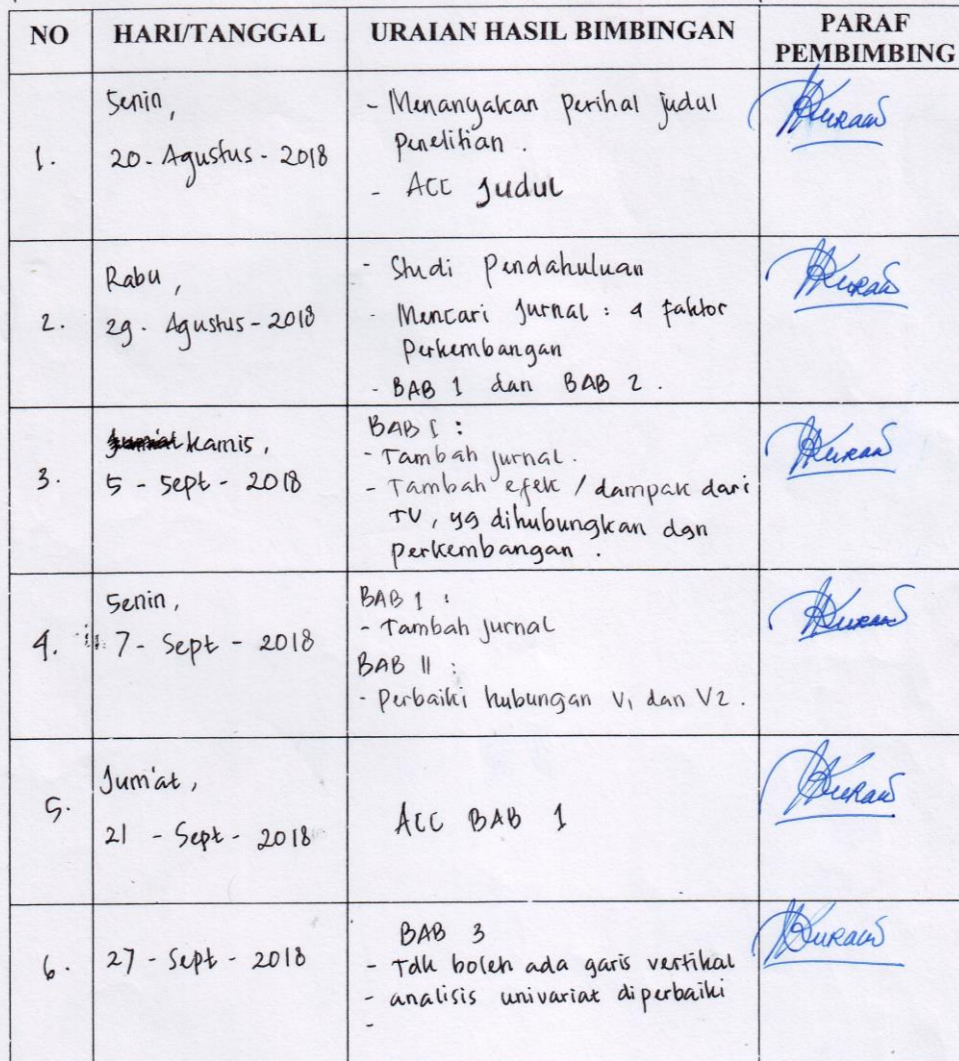 NO HARI/TANGGAL URAIAN HASIL BIMBINGAN PARAF PEMBIMBING
1.
Senin,
20 - Agustus - 2018
- Menanyakan perihal judul
Penelitian.
- ACC Judul
2.
Rabu,
29 - Agustus - 2018
- Studi Pendahuluan
- Mencari Jurnal : 4 faktor
Perkembangan
- BAB 1 dan BAB 2.
3.
Jum'at Kamis,
5 - Sept - 2018
BAB I :
- Tambah jurnal.
- Tambah efek / dampak dari
TV, yg dihubungkan dgn
Perkembangan.
4.
Senin,
7 - Sept - 2018
BAB 1 :
- Tambah Jurnal
BAB II :
- Perbaiki hubungan V1 dan V2.
5.
Jum'at,
21 - Sept - 2018
ACC BAB 1
6.
27 - Sept - 2018
BAB 3
- Tdk boleh ada garis vertikal
- analisis univariat diperbaiki
-